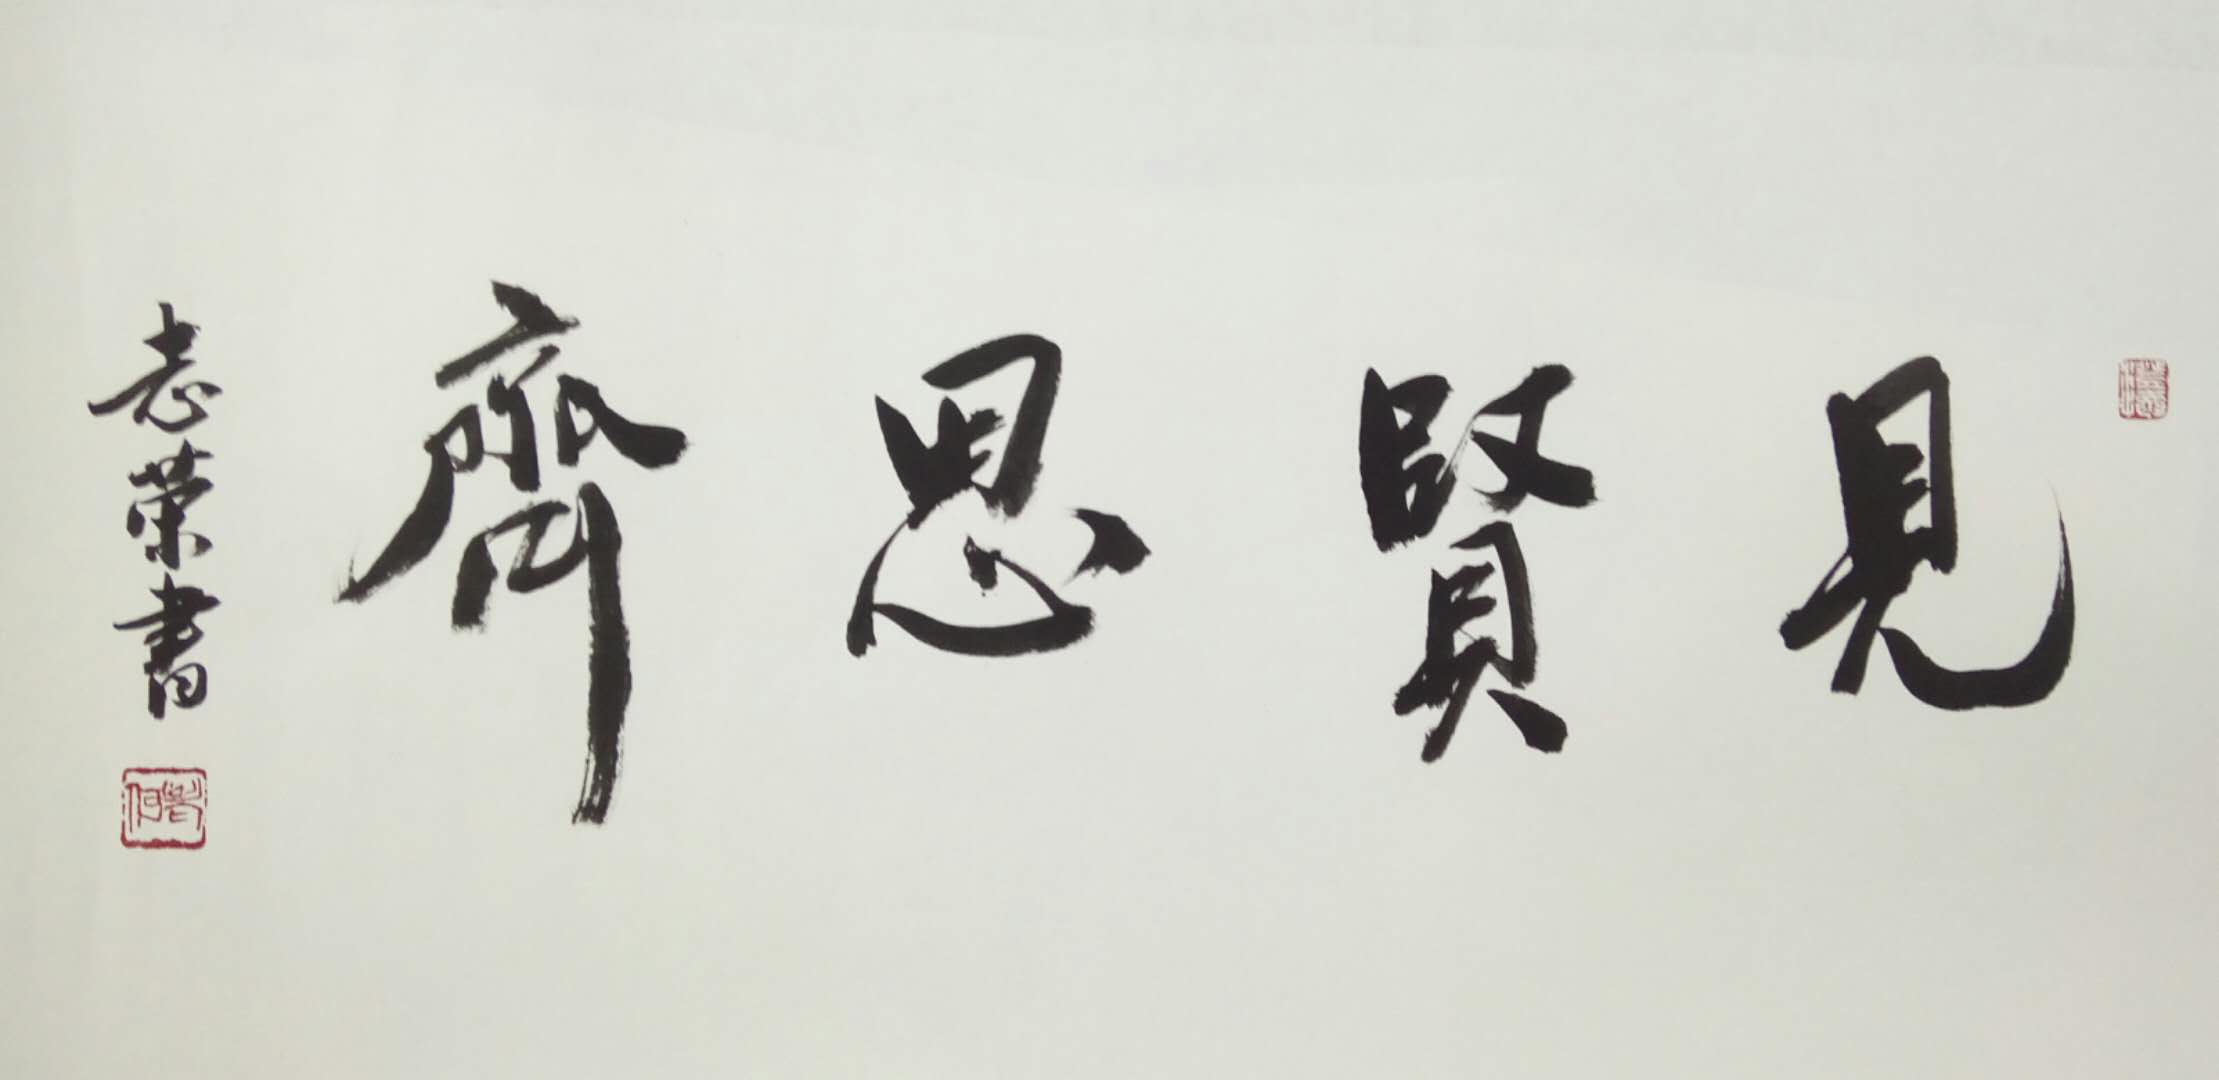 見賢思齊
志荣書